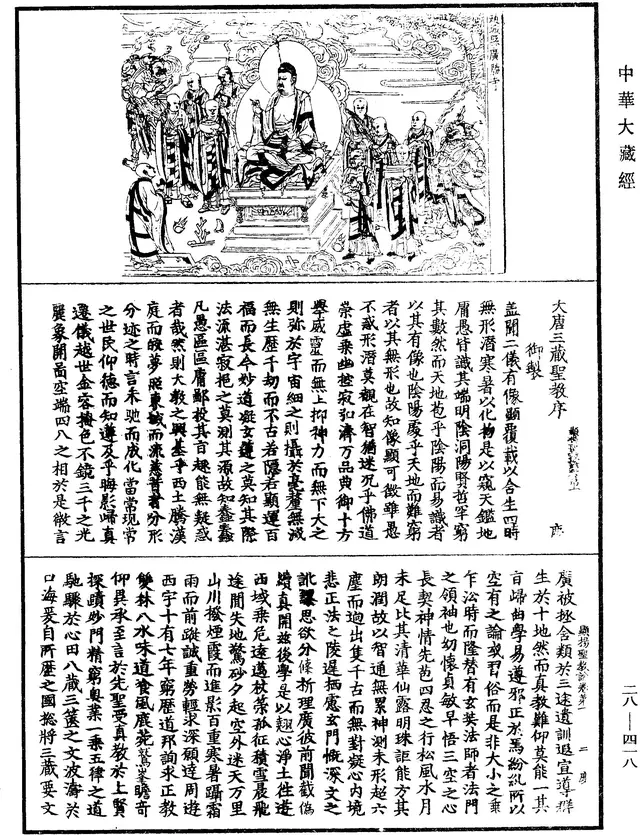 中華大藏經
大唐三藏聖教序
御製
蓋聞二儀有像顯覆載以含生四時
無形潛寒暑以化物是以窺天鑑地
庸愚皆識其端明陰洞陽賢哲罕窮
其數然而天地苞乎陰陽而易識者
以其有像也陰陽處乎天地而難窮
者以其無形也故知像顯可徵雖愚
不惑形潛莫覩在智猶迷況乎佛道
崇虛乘幽控寂弘濟万品典御十方
舉威靈而無上抑神力而無下大之
則弥於宇宙細之則攝於毫氂無滅
無生歷千劫而不古若隱若顯運百
福而長今妙道凝玄遵之莫知其際
法流湛寂挹之莫測其源故知蠢蠢
凡愚區區庸鄙投其旨趣能無疑惑
者哉然則大教之興基乎西土騰漢
庭而皎夢照東域而流慈昔者分形
分迹之時言未馳而成化當常現常
之世民仰德而知遵及乎晦影歸真
遷儀越世金容掩色不鏡三千之光
麗象開圖空端四八之相於是微言
顯揚聖教論卷第一
廣被拯含類於三途遺訓遐宣導群
生於十地然而真教難仰莫能一其
旨歸曲學易遵邪正於焉紛糺所以
空有之論或習俗而是非大小之乘
乍沿時而隆替有玄奘法師者法門
之領袖也幼懷貞敏早悟三空之心
長契神情先苞四忍之行松風水月
未足比其清華仙露明珠詎能方其
朗潤故以智通無累神測未形超六
塵而迥出隻千古而無對凝心內境
悲正法之陵遲栖慮玄門慨深文之
訛謬思欲分條析理廣彼前聞截偽
續真開茲後學是以翹心淨土往遊
西域乘危遠邁杖策孤征積雪晨飛
途間失地驚砂夕起空外迷天万里
山川撥煙霞而進影百重寒暑躡霜
雨而前蹤誠重勞輕求深願達周遊
西宇十有七年窮歷道邦詢求正教
雙林八水味道飡風鹿苑鷲峯瞻奇
仰異承至言於先聖受真教於上賢
探賾妙門精窮奧業一乘五律之道
馳驟於心田八藏三篋之文波濤於
口海爰自所歷之國総將三藏要文
二八—四一八